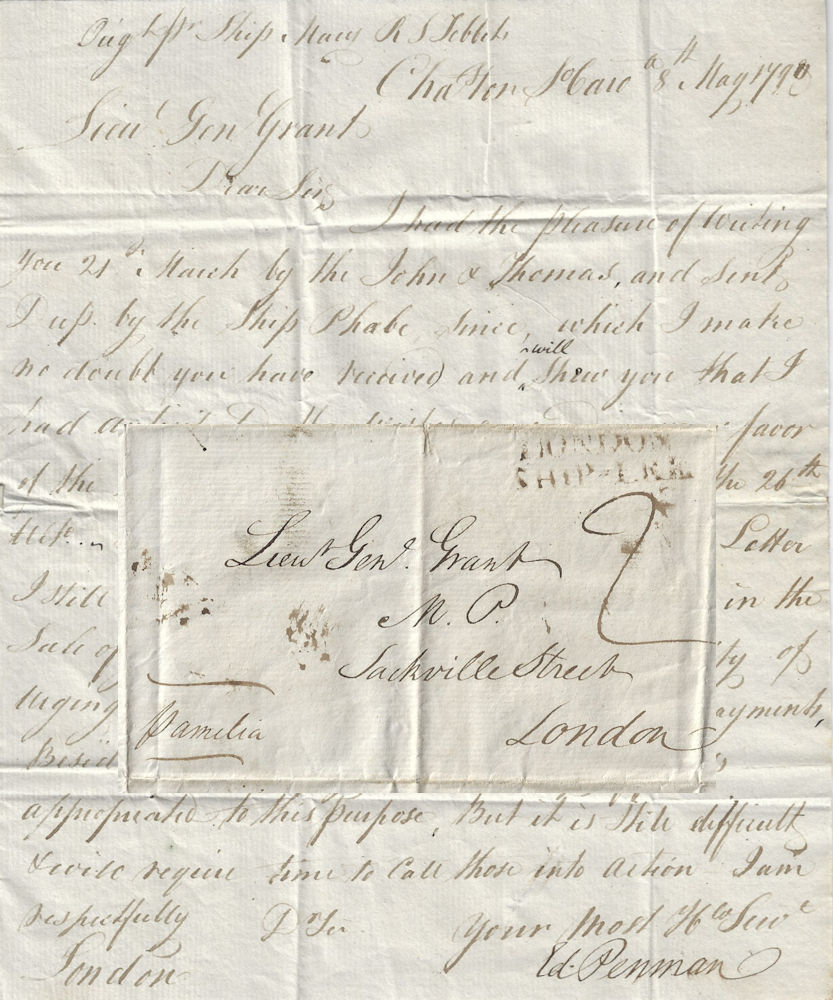 Orig.l pr Ship Mary R S Tebbets
Cha.s Ton So Caro.a 8th May 1790
Lieu.t Gen Grant
Dear Sir
I had the pleasure of Writing
you 21st March by the John & Thomas, and sent
Dup. by the Ship Phabe, since, which I make
no doubt you have received and will shew you that I
had favor
of the the 26th
Letter
I still in the
Sale of ty of
urging ayments,
Besid
appropriated to this purpose, But it is Still difficult
& will require time to Call those into action I am
respectfully Dr Sir Your Most Hble Servt
London Ed. Penman
LONDON
SHIP-LRE
2
Lieut Genl. Grant
M. P.
Sackville Street
London
pamelia